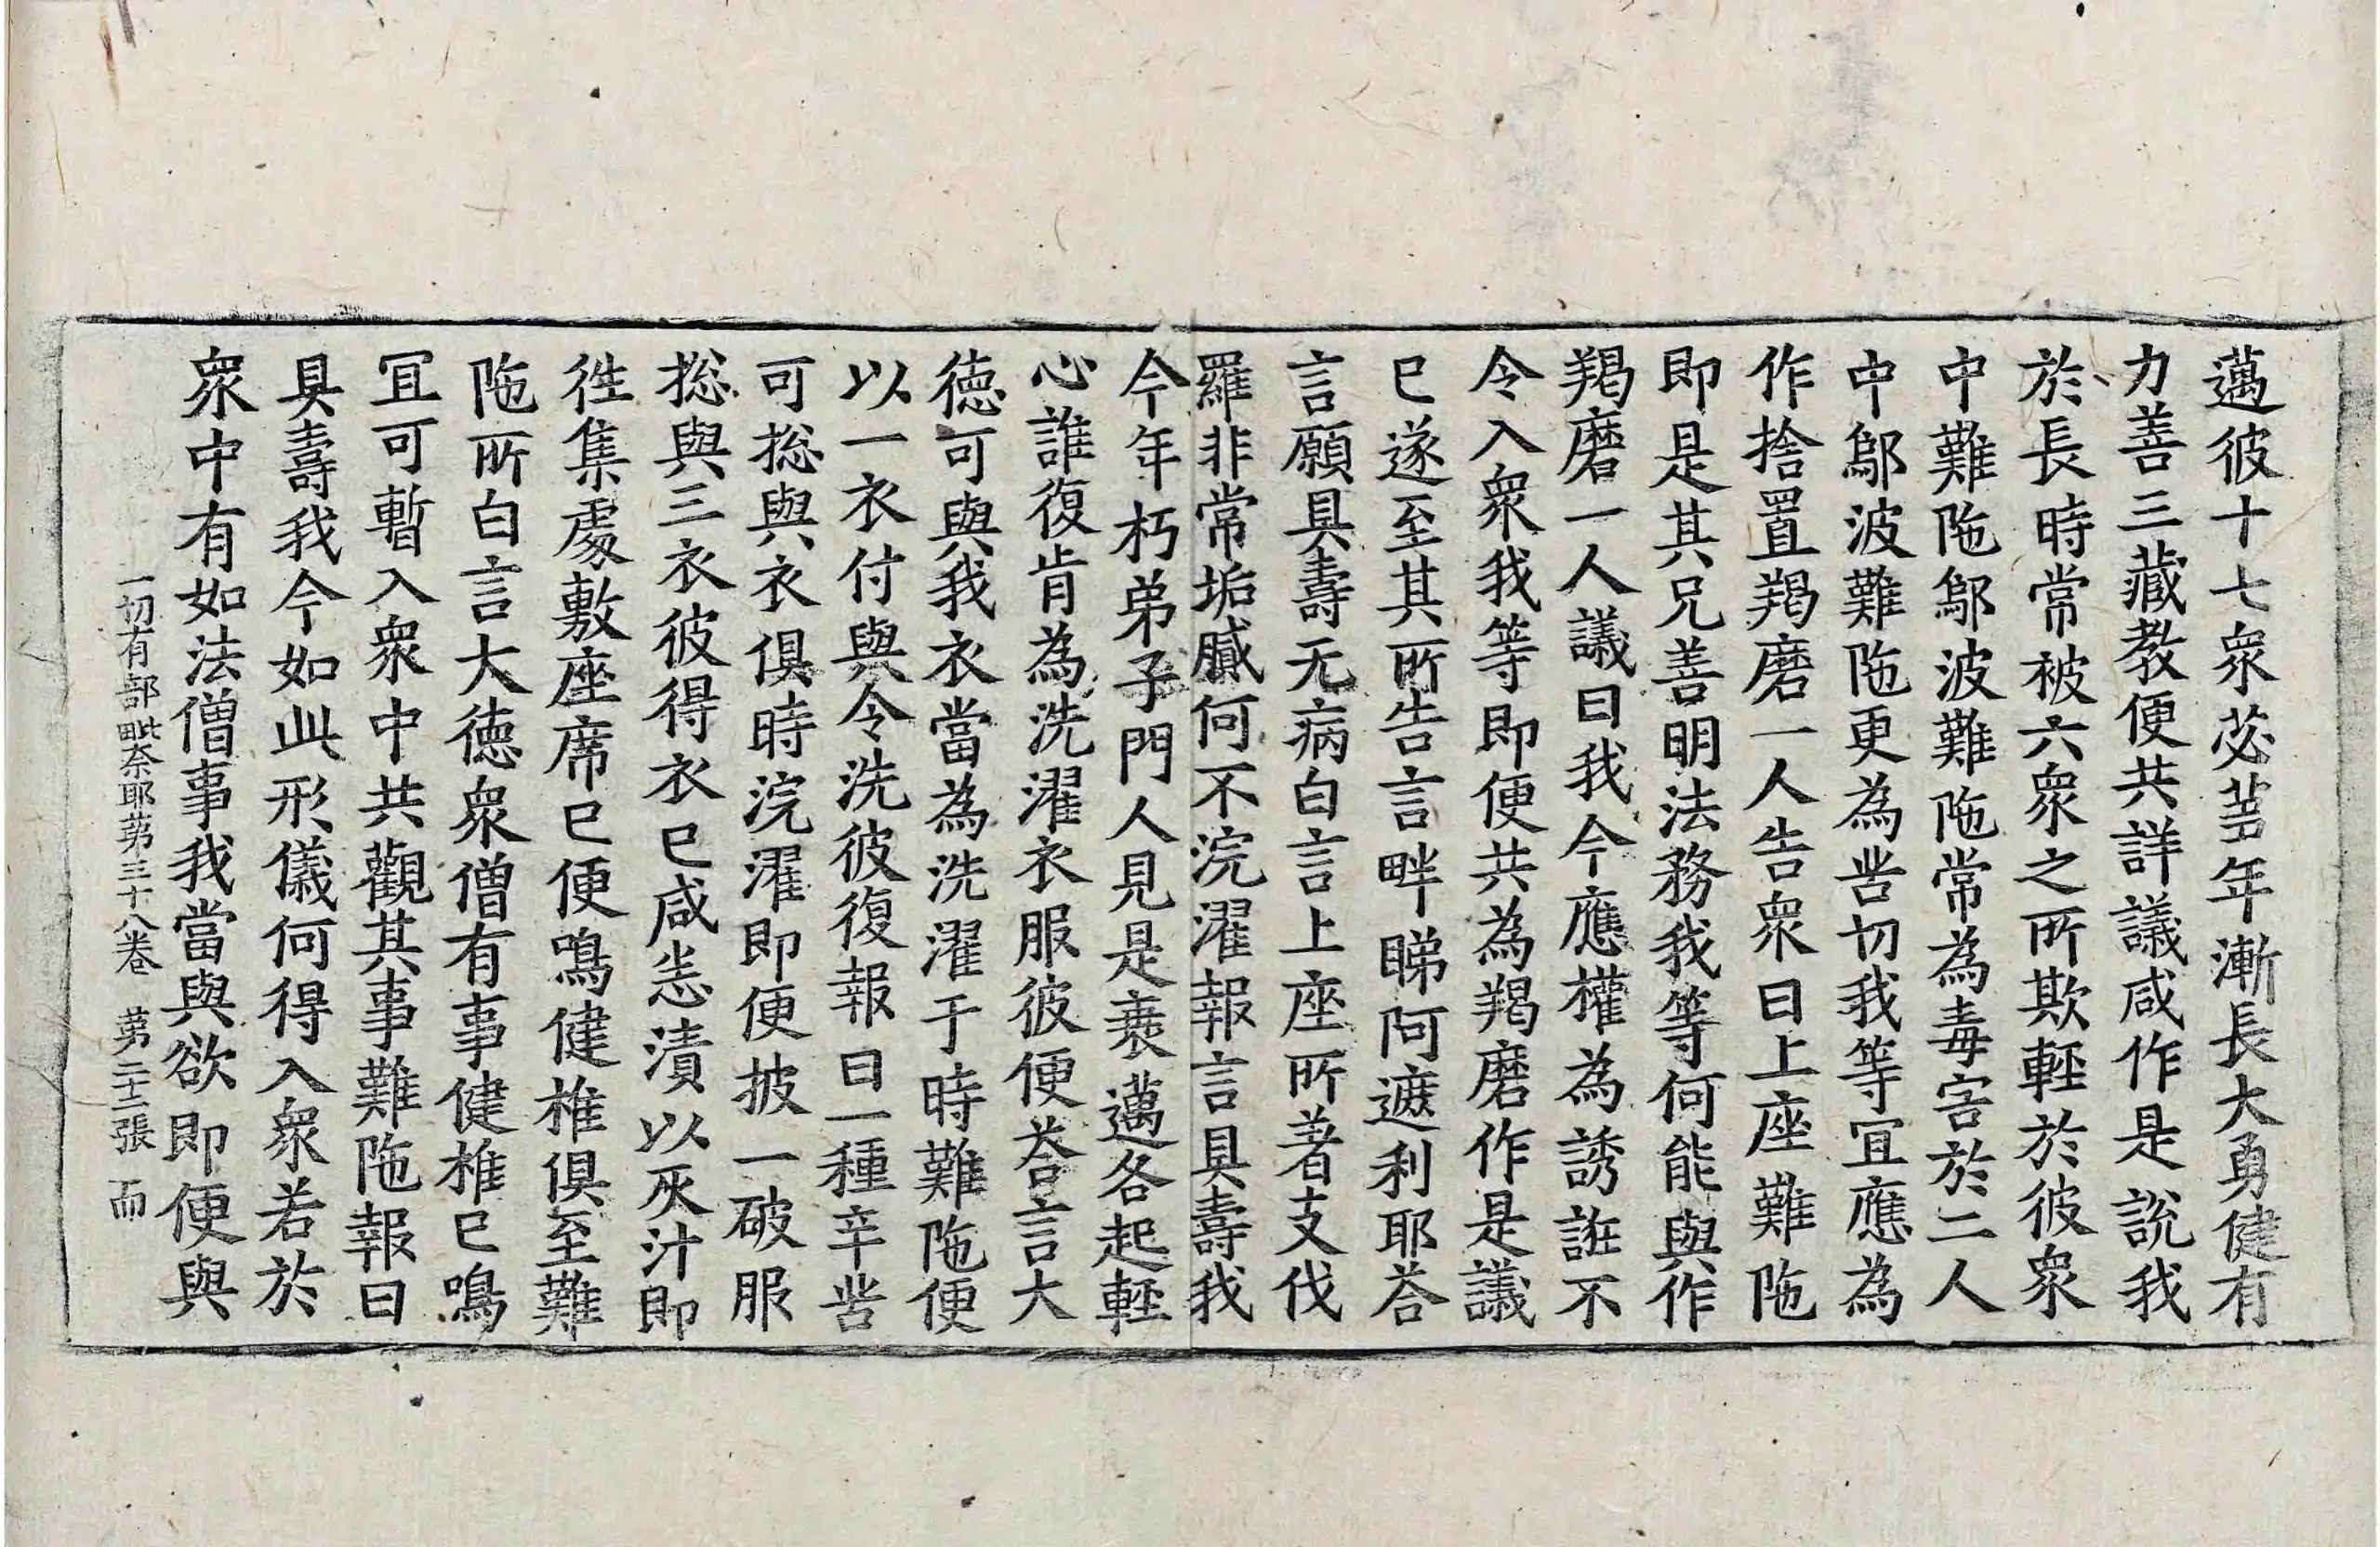 邁彼十七衆苾芻年漸長大勇健有
力善三藏教便共詳議咸作是說我
於長時常被六衆之所欺輕於彼衆
中難陁鄔波難陁常為毒害於二人
中鄔波難陁更為苦切我等冝應為
作捨置羯磨一人告衆曰上座難陁
即是其兄善明法務我等何能與作
羯磨一人議曰我今應權為誘誑不
令入衆我等即便共為羯磨作是議
已遂至其所告言畔睇阿遮利耶荅
言願具壽无病白言上座所著支伐
羅非常垢膩何不浣濯報言具壽我
今年朽弟子門人見是衰邁各起輕
心誰復肯為洗濯衣服彼便荅言大
德可與我衣當為洗濯于時難陁便
以一衣付與令洗彼復報曰一種辛苦
可捴與衣俱時浣濯即便披一破服
捴與三衣彼得衣已咸恙漬以灰汁即
徃集處敷座席已便鳴健椎俱至難
陁所白言大德衆僧有事健椎已鳴
冝可暫入衆中共觀其事難陁報曰
具壽我今如此形儀何得入衆若於
衆中有如法僧事我當與欲即便與
一切有部毗奈耶苐三十八卷　苐二十二張　而